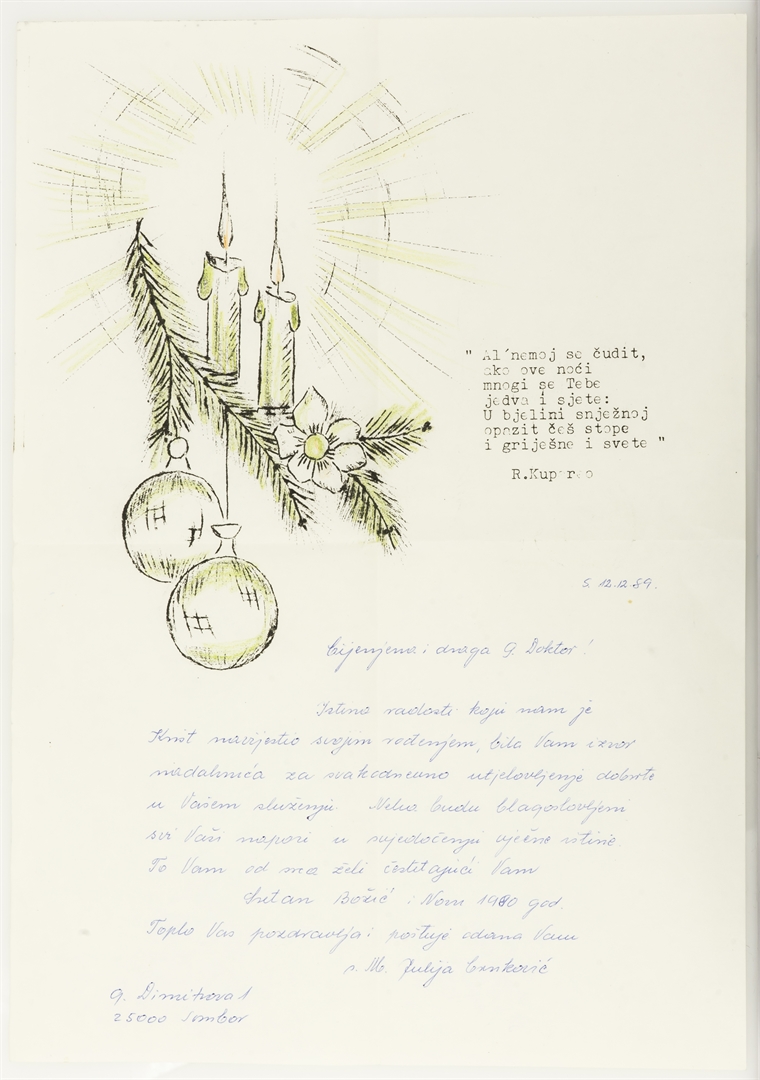 " Al´nemoj se čudit,
ako ove noći
mnogi se Tebe
jedva i sjete:
U bjelini snježnoj
opazit ćeš stope
i griješne i svete "
R.Kupareo
S. 12.12.89.
Cijenjena i draga G. Doktor!
Istina radosti koju nam je
Krist navijestio svojim rođenjem, bila Vam izvor
nadahnuća za svakodnevno utjelovljenje dobrote
u Vašem služenju. Neka budu blagoslovljeni
svi Vaši napori u svjedočenju vječne istine.
To Vam od srca želi čestitajući Vam
Sretan Božić i Novu 1980 god.
Toplo Vas pozdravlja i poštuje odana Vam
s. M. Julija Crnković
G. Dimitrova 1
25000 Sombor